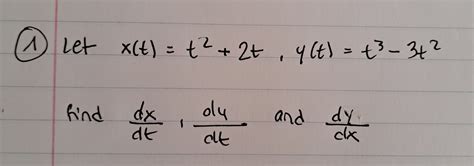 ① Let x(t) = t² + 2t , y(t) = t³ - 3t²
find dx/dt , dy/dt and dy/dx